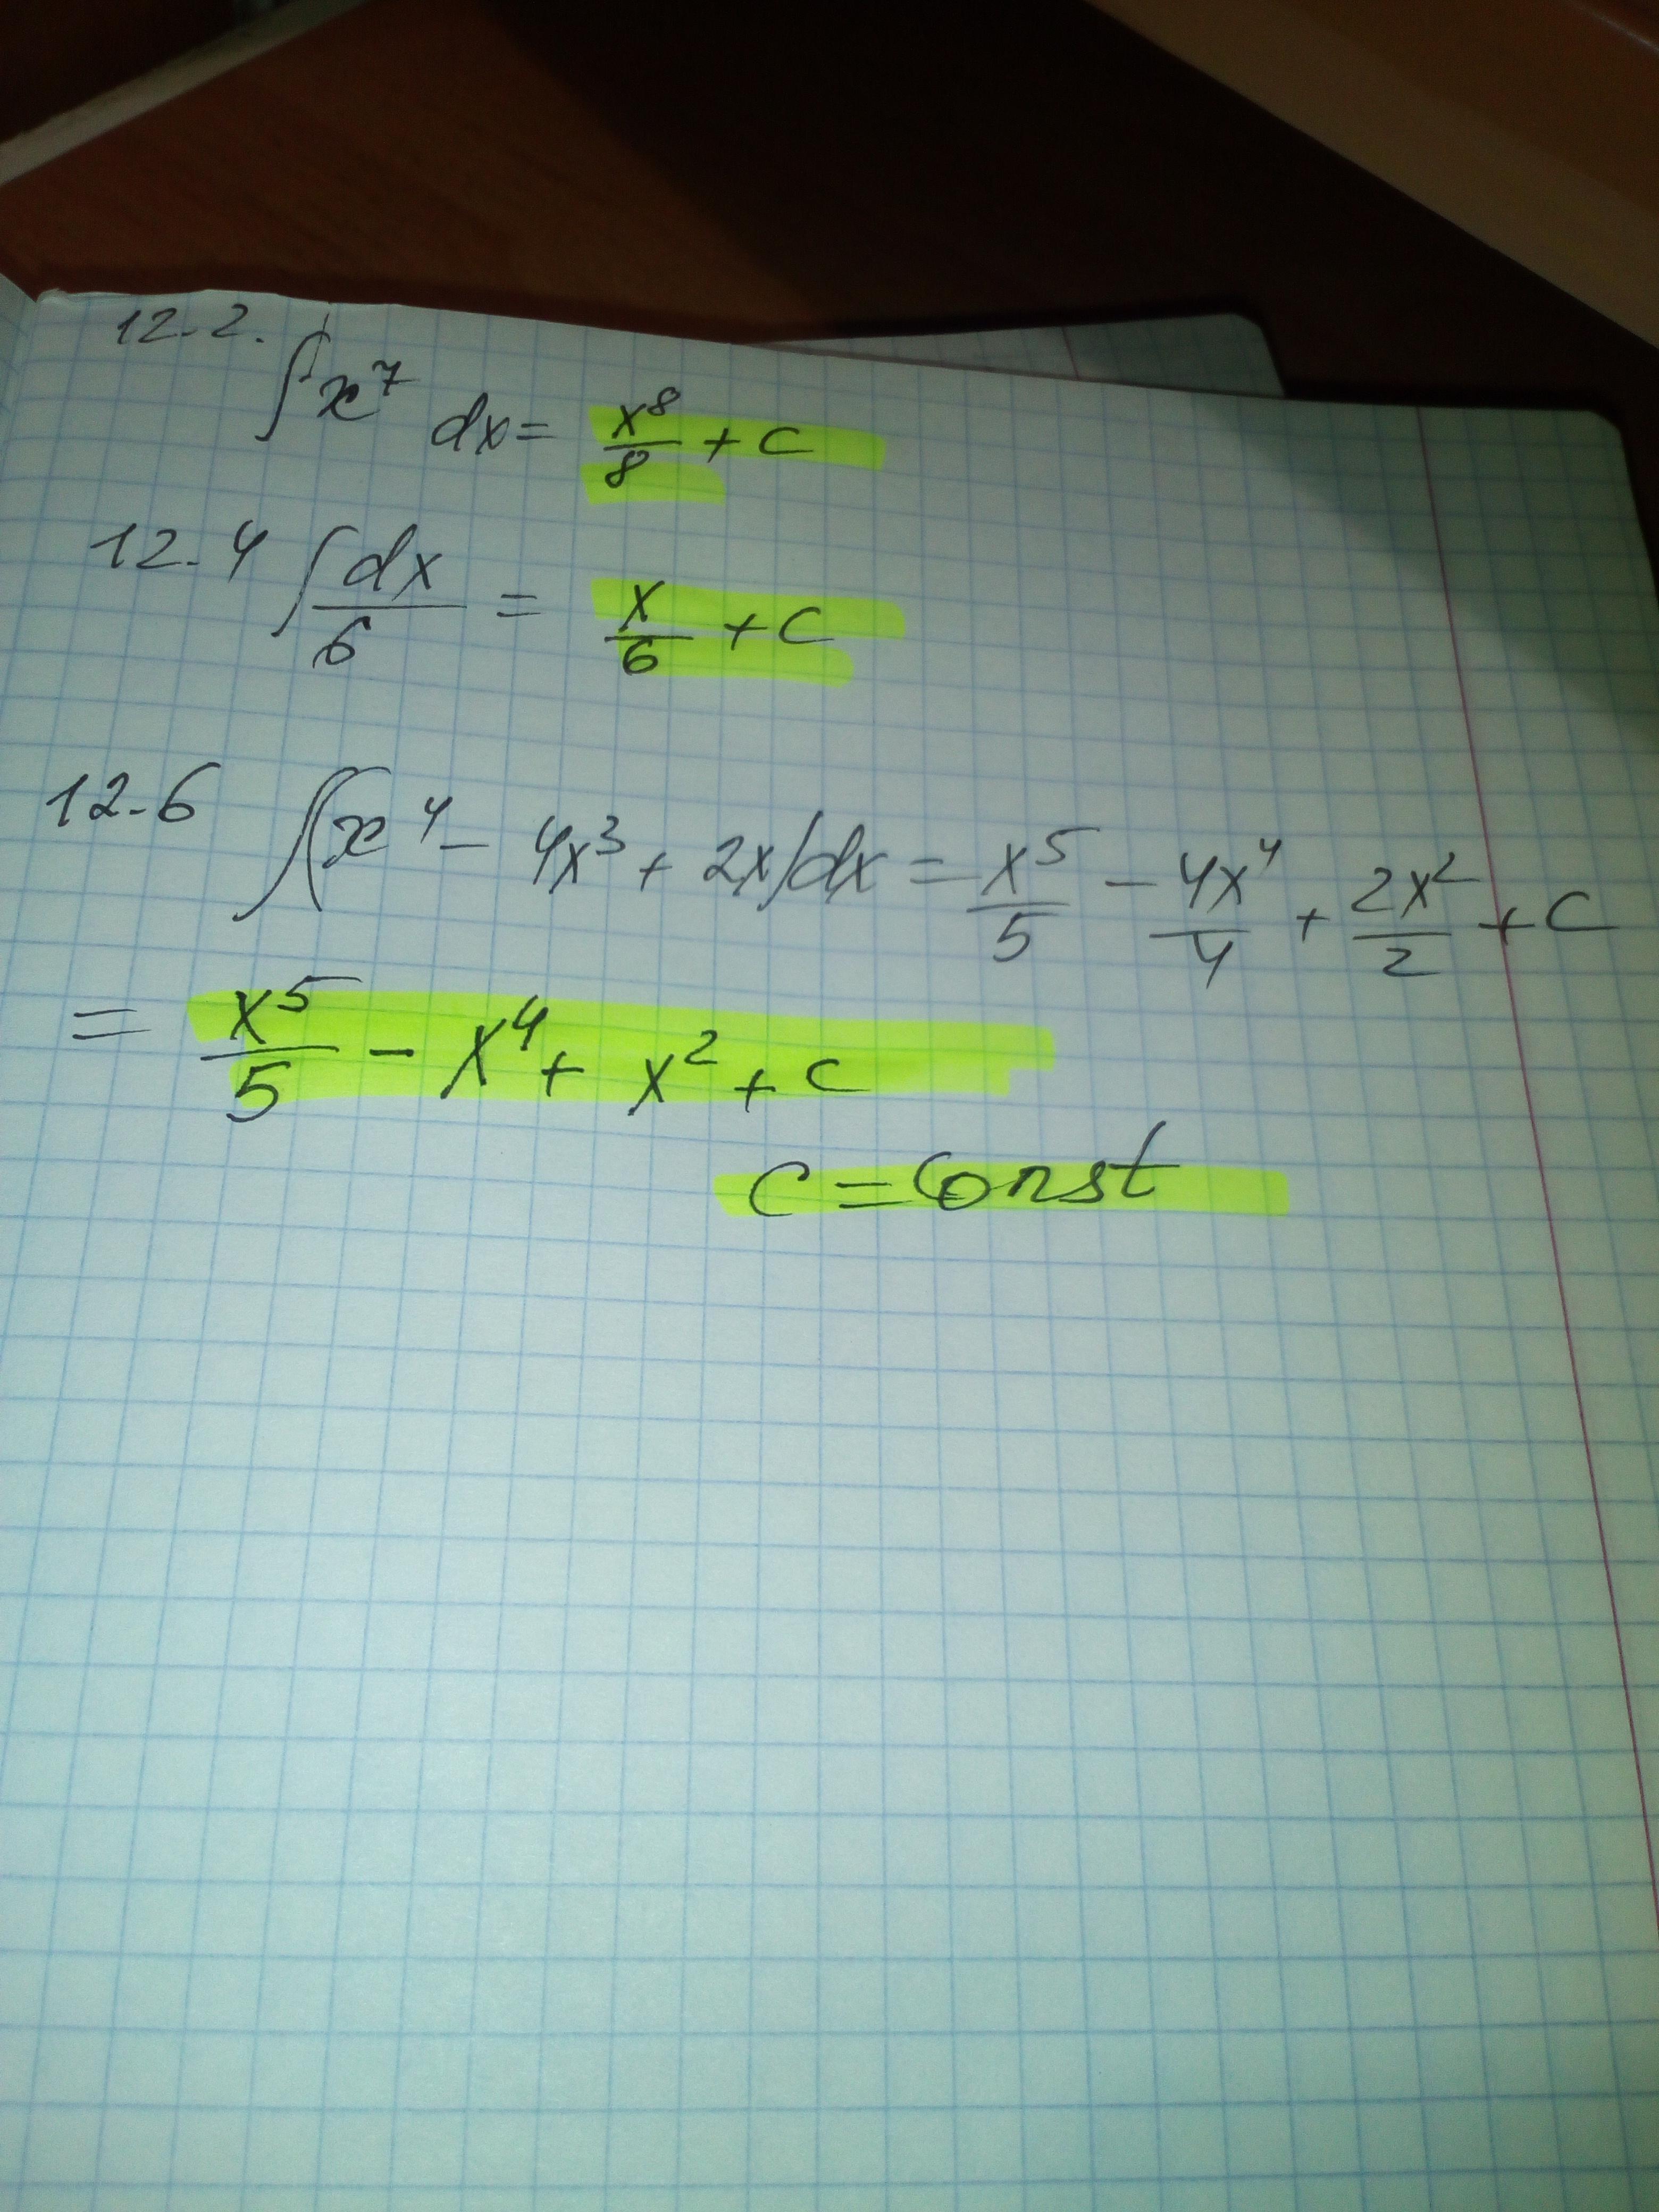 12.2. ∫x⁷ dx = x⁸/8 + C
12.4 ∫dx/6 = x/6 + C
12.6 ∫(x⁴ - 4x³ + 2x)dx = x⁵/5 - 4x⁴/4 + 2x²/2 + C
= x⁵/5 - x⁴ + x² + C
C = Const